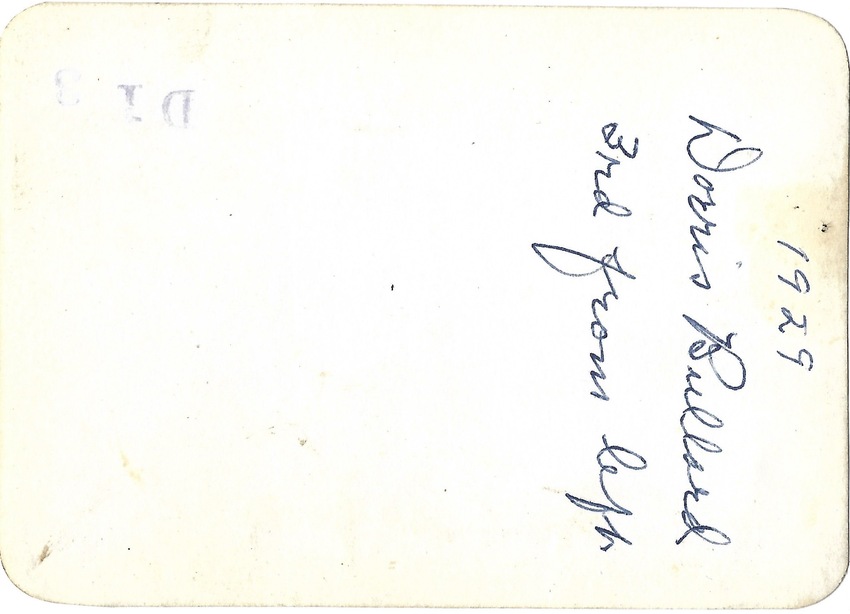 1929
Dorris Bullard
3rd from left